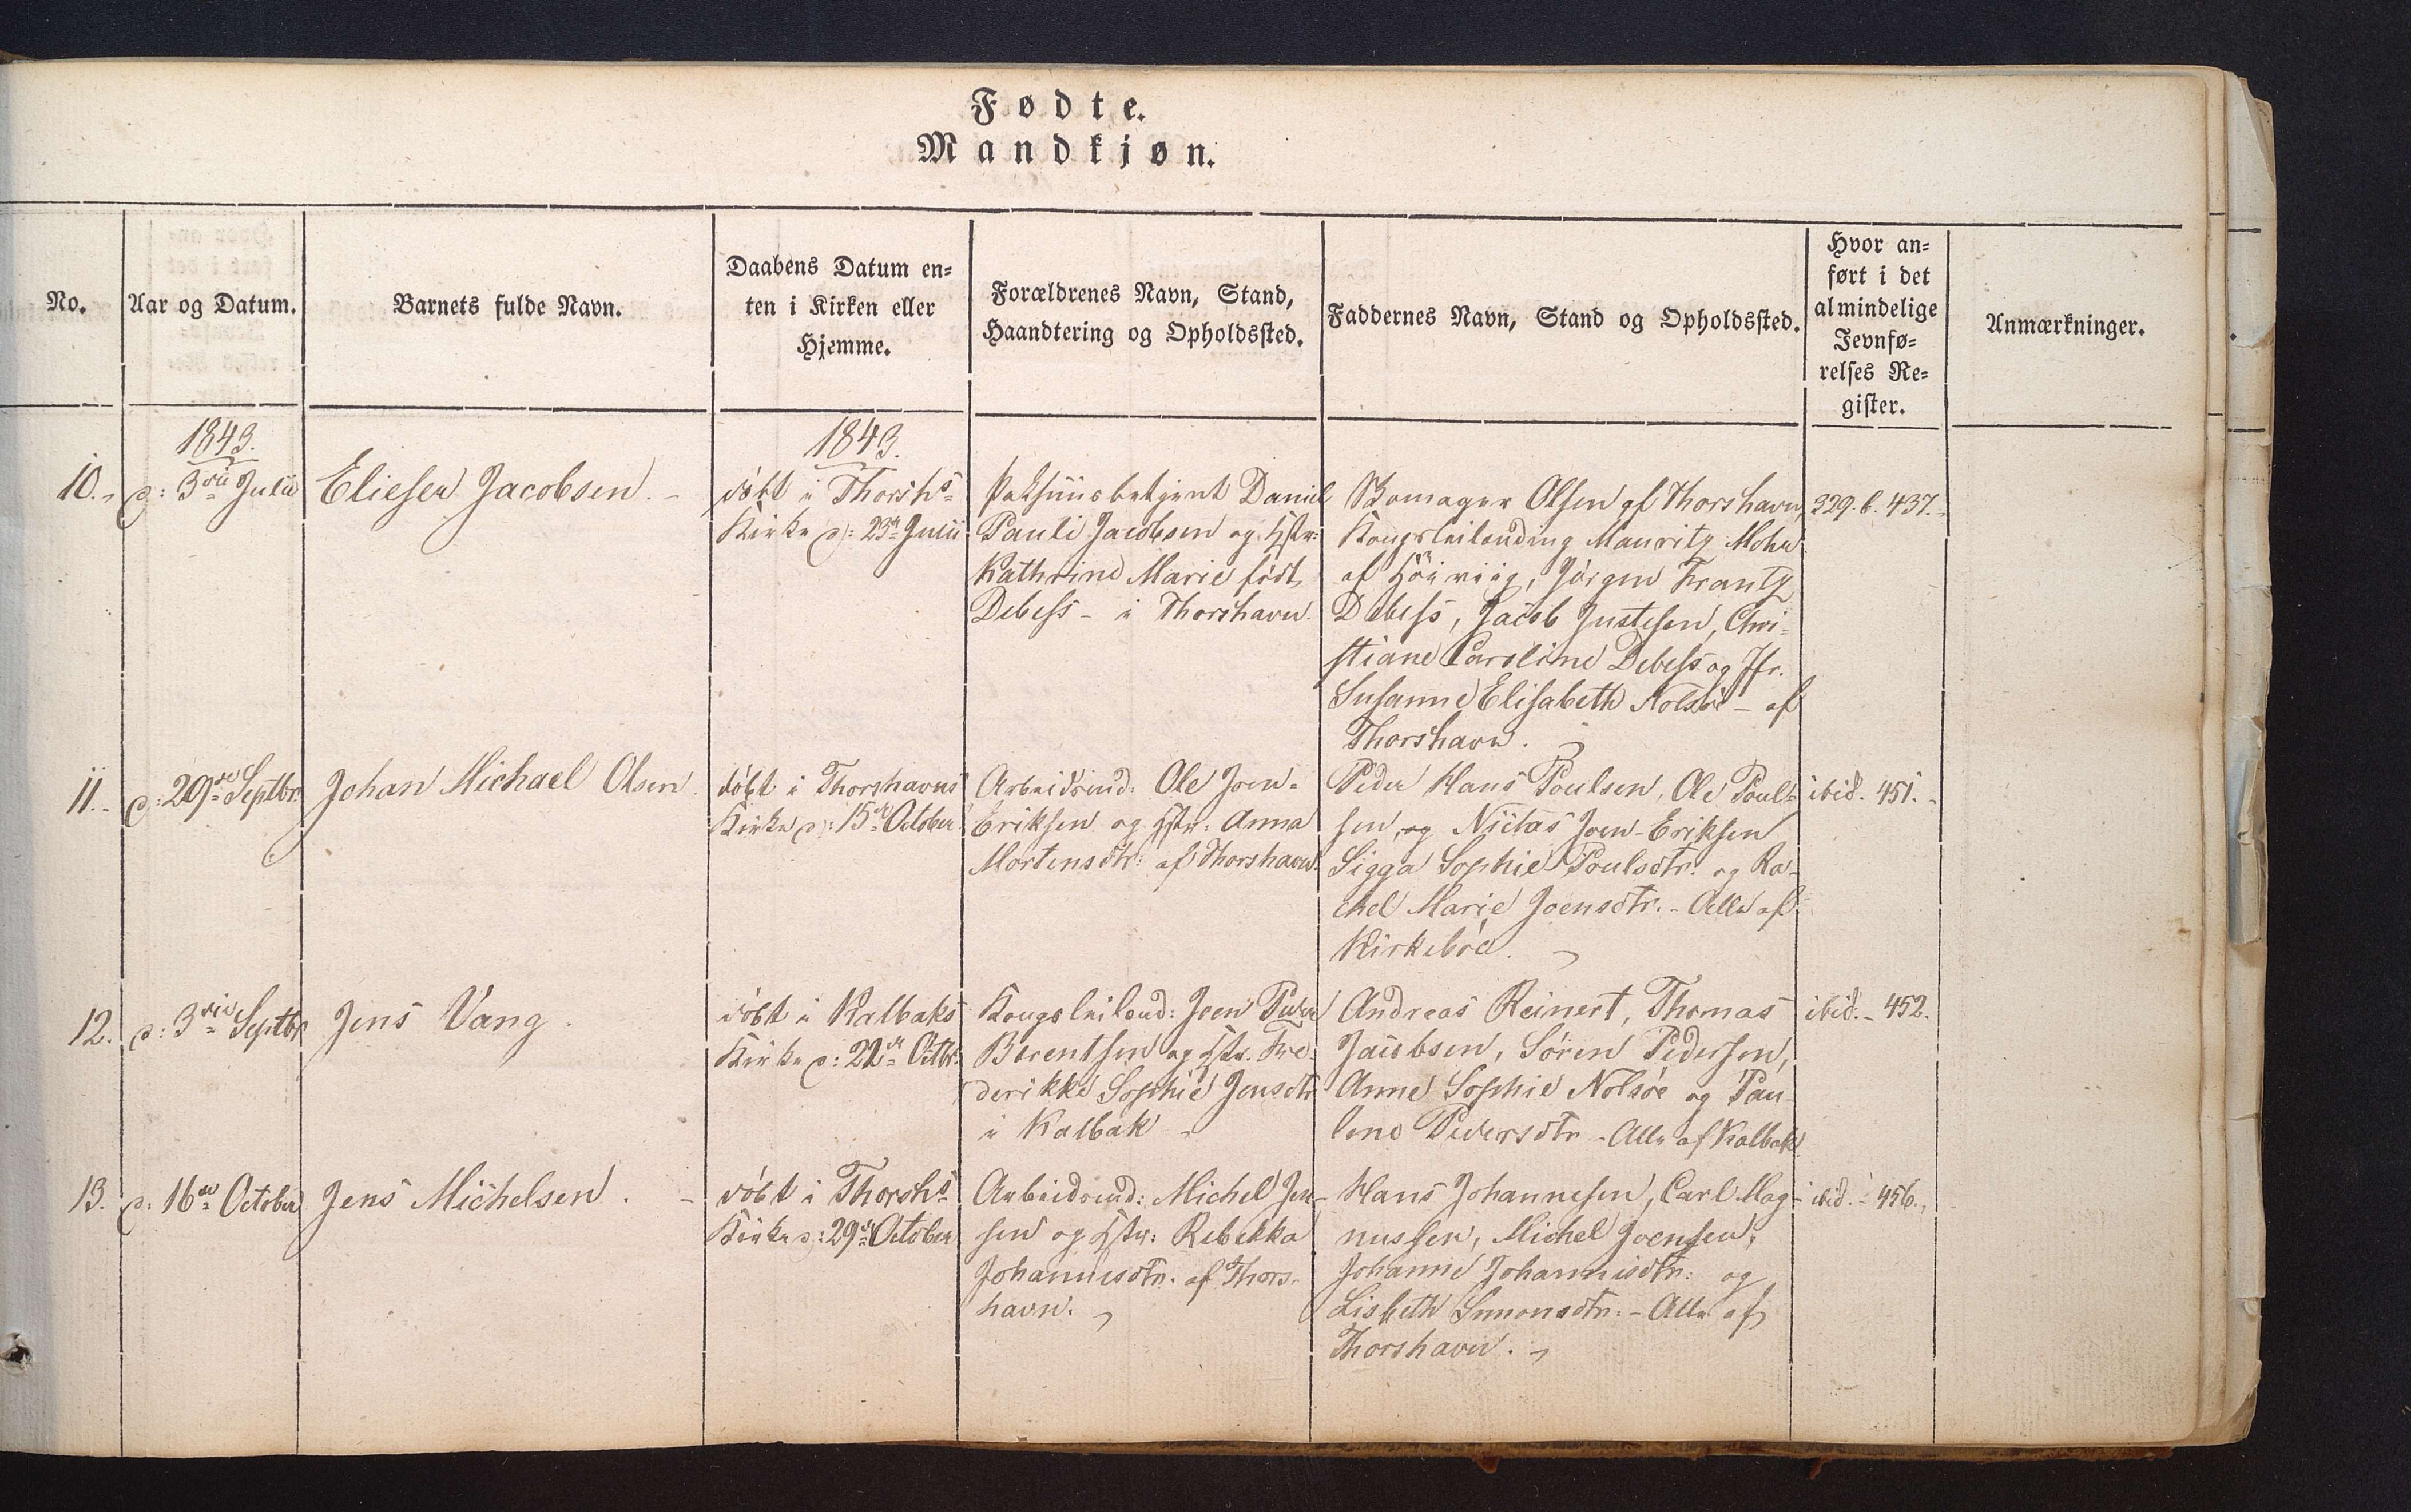 Fødte.
Mandkjøn.
No.
Aar og Datum.
Barnets fulde Navn.
Daabens Datum en-
ten i Kirken eller
Hjemme.
Forældrenes Navn, Stand,
Haandtering og Opholdssted.
Faddernes Navn, Stand og Opholdssted.
Hvor an-
ført i det
almindelige
Jevnfø-
relses Re-
gister.
Anmærkninger.
1843.
10.
d: 3die Julii
Elieser Jacobsen.
1843.
døbt i Thorshs
Kirke d: 23de Julii
Pakhuusbetjent Daniel
Pauli Jacobsen og Hstr:
Kathrine Marie født
Debess - i Thorshavn.
Skomager Olsen af Thorshavn
Kongsleilending Mauritz Mohr
af Höiviig, Jörgen Frantz
Debess, Jacob Justesen, Chri-
stiane Caroline Debess og Jfr.
Susanne Elisabeth Nolsöe - af
Thorshavn.
329. b. 437.
11.
d: 29de Septbr
Johan Michael Olsen.
döbt i Thorshavns
Kirke d: 15de October
Arbeidsmd: Ole Joen-
Eriksen og Hstr: Anna
Mortensdtr: af Thorshavn.
Peder Hans Poulsen, Ole Poul-
sen, og Niclas Joen-Eriksen
Sigga Sophie Poulsdtr: og Ra-
chel Marie Joensdtr. - Alle af
Kirkeböe.
ibid. 451.
12.
d: 3die Septbr
Jens Vang.
döbt i Kalbaks
Kirke d: 22de Octbr:
Kongsleilend: Joen Peder
Berentsen og Hstr. Fre-
derikke Sophie Jensdtr
i Kalbak -
Andreas Reinert, Thomas
Jacobsen, Sören Pedersen,
Anne Sophie Nolsöe og Pau-
line Pedersdtr - Alle af Kalbak
ibid. - 452.
13.
d: 16de October
Jens Michelsen. -
döbt i Thorshs
Kirke d: 29de October
Arbeidsmd: Michel Jen-
sen og Hstr: Rebekka
Johannesdtr. af Thors-
havn.
Hans Johannesen, Carl Mag-
nussen, Michel Joensen,
Johanne Johannisdtr: og
Lisbeth Simonsdtr. - Alle af
Thorshavn.
ibid. - 456.